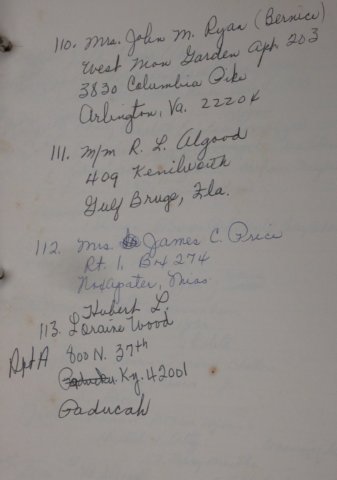 110. Mrs. John M. Ryan (Bernice)
West Mon Garden Apt. 203
3830 Columbia Pike
Arlington, Va. 22204
111. M/m R. L. Algood
409 Kenilworth
Gulf Bruge, Fla.
112. Mrs James C. Price
Rt. 1, B4 274
Noxapater, Miss
Hubert L.
113. Loraine Wood
Apt A 800 N. 37th
Paducu. Ky. 42001
Paducah